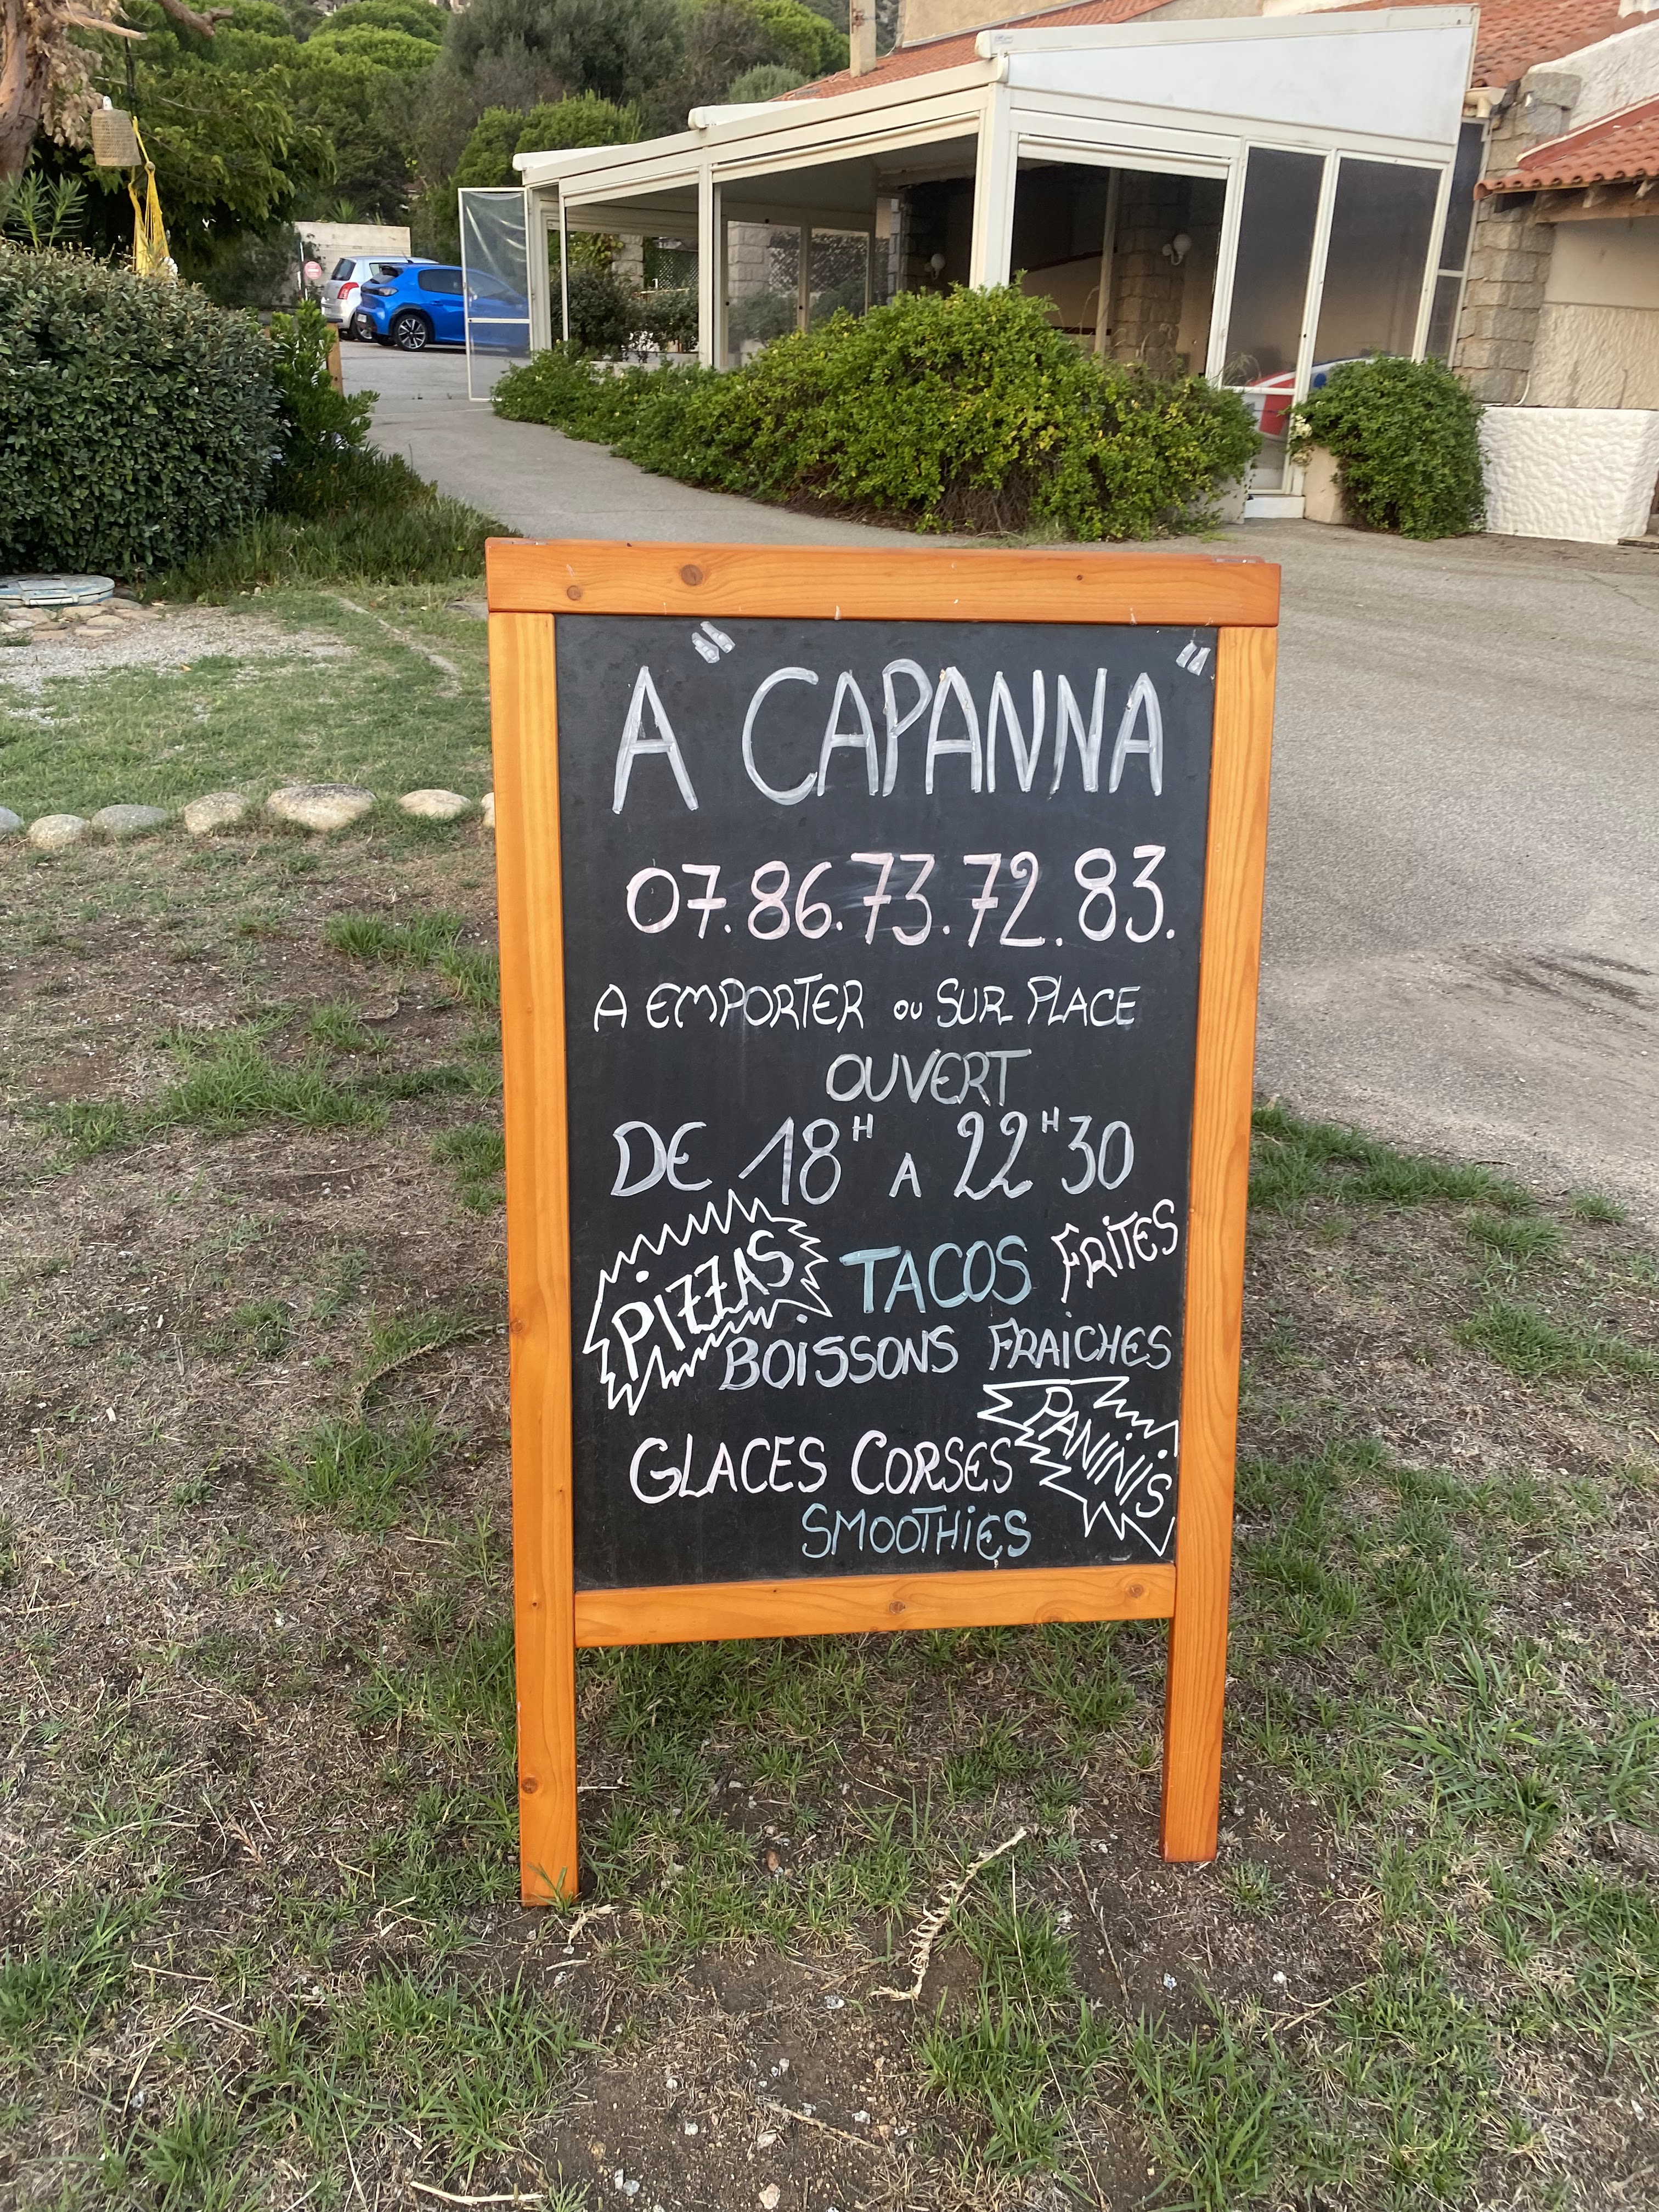 A "CAPANNA"
07.86.73.72.83.
A EMPORTER OU SUR PLACE
OUVERT
DE 18H A 22H30
PIZZAS TACOS FRITES
BOISSONS FRAICHES
GLACES CORSES PANINIS
SMOOTHIES